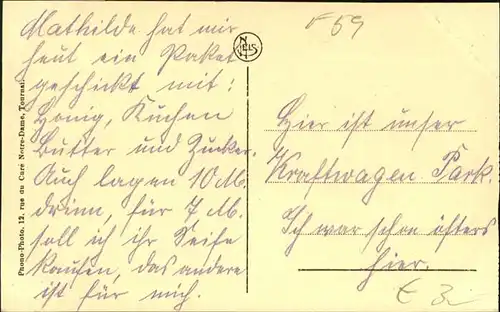 Mathilde hat mir
heut ein Paket
geschickt mit:
Honig, Kuchen
Butter und Zucker.
Auch lagen 10 M.
drinn, für 7 M.
soll ich ihr Seife
kaufen, das andere
ist für mich.
Phono-Photo, 12, rue du Curé Notre-Dame, Tournai.
NELS
59
Hier ist unser
Kraftwagen Park.
Ich war schon öfters
hier.
€ 3